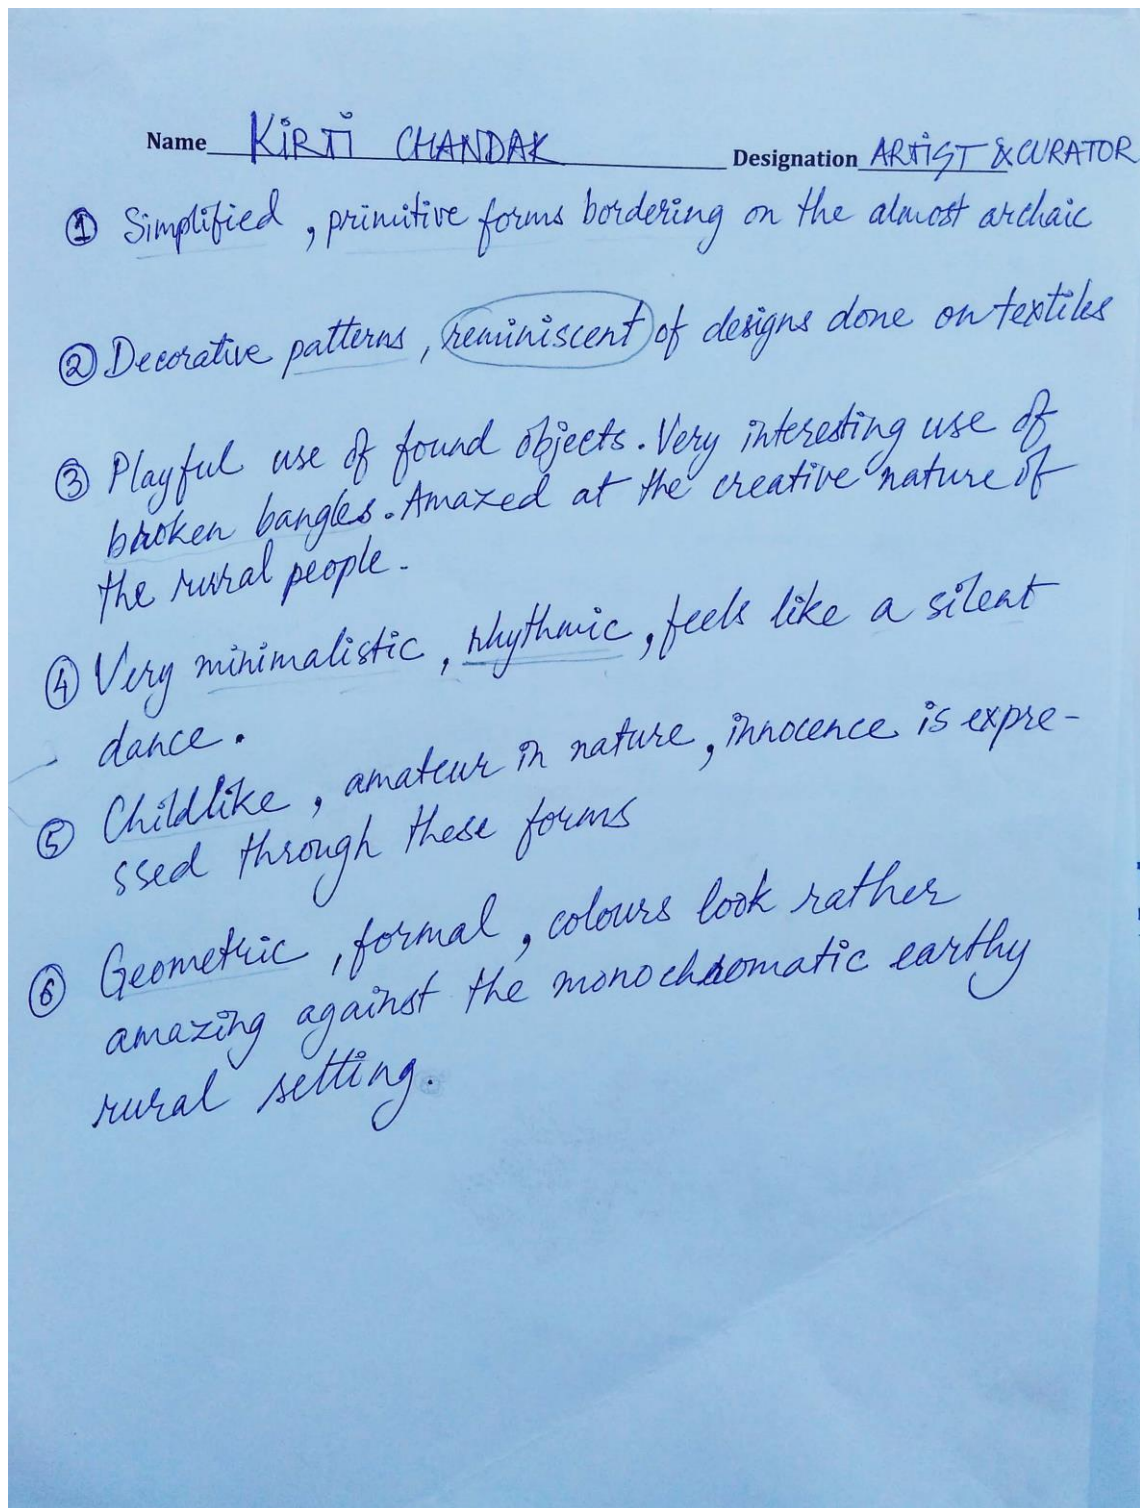 Name KIRTI CHANDAK Designation ARTIST & CURATOR
① Simplified, primitive forms bordering on the almost archaic
② Decorative patterns, reminiscent of designs done on textiles
③ Playful use of found objects. Very interesting use of
broken bangles. Amazed at the creative nature of
the rural people.
④ Very minimalistic, rhythmic, feels like a silent
dance.
⑤ Childlike, amateur in nature, innocence is expre-
ssed through these forms
⑥ Geometric, formal, colours look rather
amazing against the monochromatic earthy
rural setting.